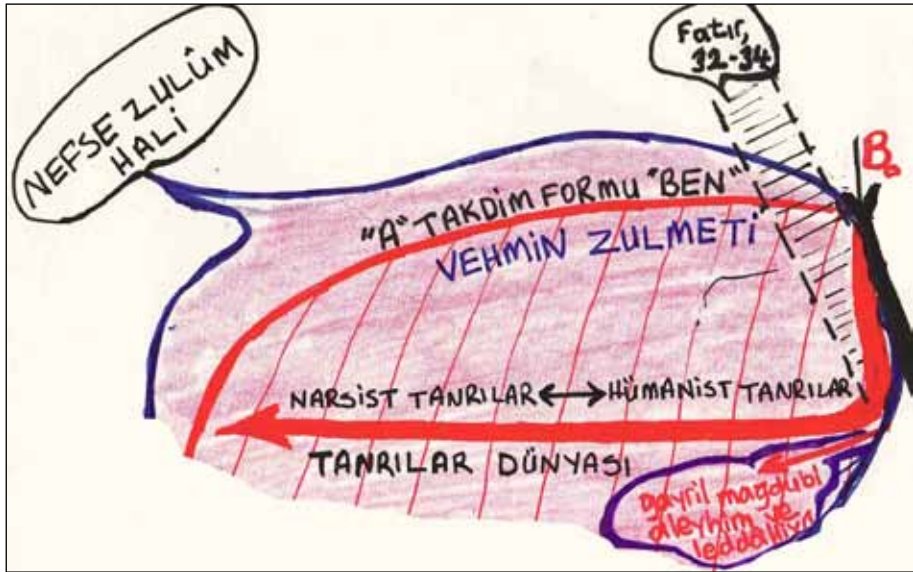 NEFSE ZULÛM
HALİ
Fatır,
32-34
B
"A" TAKDİM FORMU "BEN"
VEHMİN ZULMETİ
NARSİST TANRILAR ↔ HÜMANİST TANRILAR
TANRILAR DÜNYASI
gayril magdubi
aleyhim ve
leddalliyn